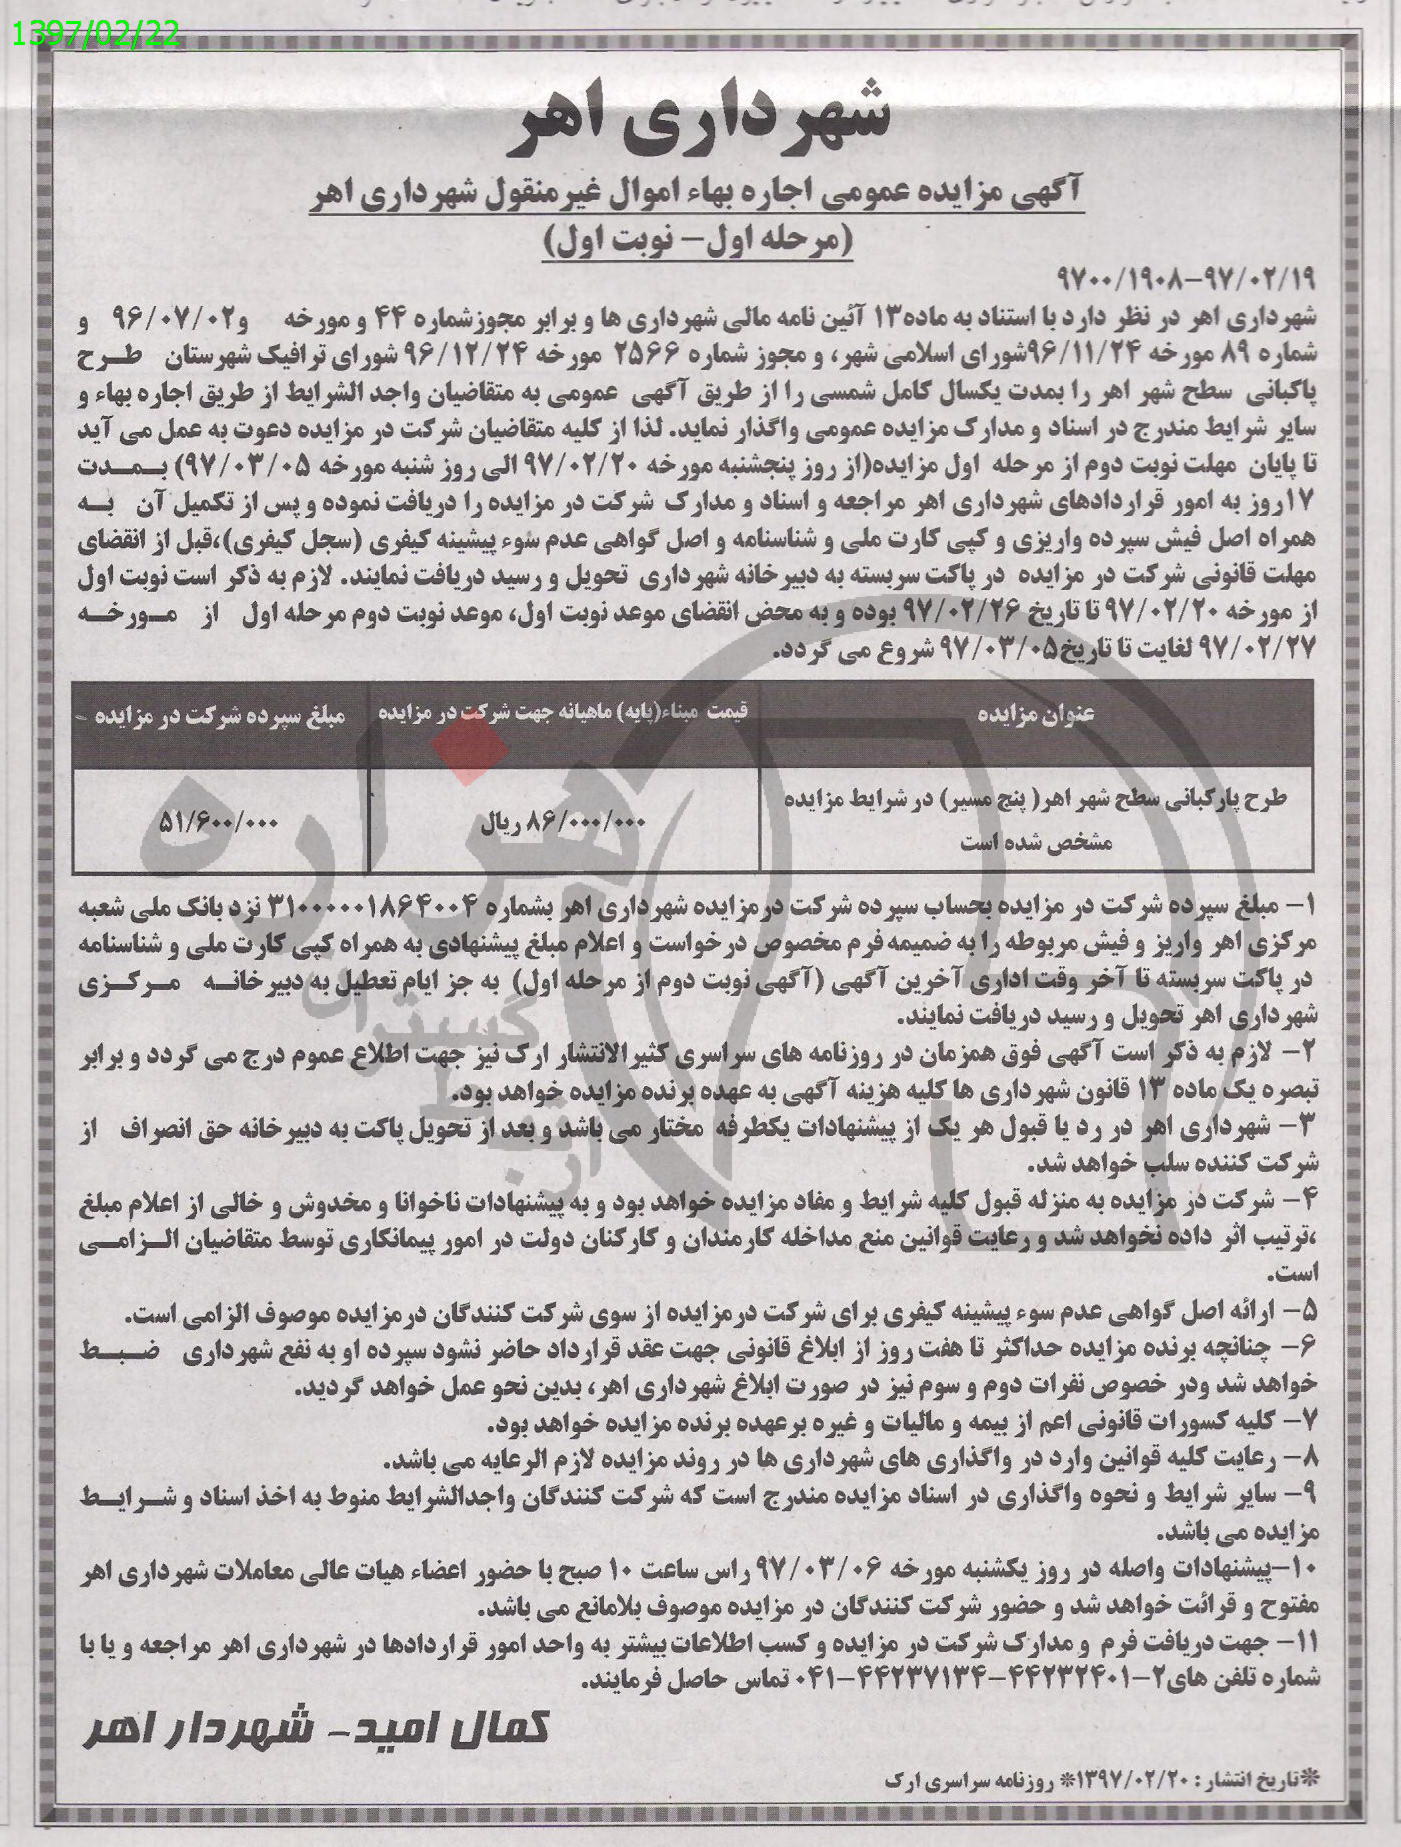 1397/02/22
شهرداری اهر
آگهی مزایده عمومی اجاره بهاء اموال غیرمنقول شهرداری اهر
(مرحله اول- نوبت اول)
۹۷۰۰/۱۹۰۸-۹۷/۰۲/۱۹
شهرداری اهر در نظر دارد با استناد به ماده۱۳ آئین نامه مالی شهرداری ها و برابر مجوزشماره ۴۴ و مورخه و۹۶/۰۷/۰۲ و
شماره ۸۹ مورخه ۹۶/۱۱/۲۴شورای اسلامی شهر، و مجوز شماره ۲۵۶۶ مورخه ۹۶/۱۲/۲۴ شورای ترافیک شهرستان طرح
پاکبانی سطح شهر اهر را بمدت یکسال کامل شمسی را از طریق آگهی عمومی به متقاضیان واجد الشرایط از طریق اجاره بهاء و
سایر شرایط مندرج در اسناد و مدارک مزایده عمومی واگذار نماید. لذا از کلیه متقاضیان شرکت در مزایده دعوت به عمل می آید
تا پایان مهلت نوبت دوم از مرحله اول مزایده(از روز پنجشنبه مورخه ۹۷/۰۲/۲۰ الی روز شنبه مورخه ۹۷/۰۳/۰۵) بمدت
۱۷روز به امور قراردادهای شهرداری اهر مراجعه و اسناد و مدارک شرکت در مزایده را دریافت نموده و پس از تکمیل آن به
همراه اصل فیش سپرده واریزی و کپی کارت ملی و شناسنامه و اصل گواهی عدم سوء پیشینه کیفری (سجل کیفری)،قبل از انقضای
مهلت قانونی شرکت در مزایده در پاکت سربسته به دبیرخانه شهرداری تحویل و رسید دریافت نمایند. لازم به ذکر است نوبت اول
از مورخه ۹۷/۰۲/۲۰ تا تاریخ ۹۷/۰۲/۲۶ بوده و به محض انقضای موعد نوبت اول، موعد نوبت دوم مرحله اول از مورخه
۹۷/۰۲/۲۷ لغایت تا تاریخ۹۷/۰۳/۰۵ شروع می گردد.
عنوان مزایده
قیمت مبناء(پایه) ماهیانه جهت شرکت در مزایده
مبلغ سپرده شرکت در مزایده -
طرح پارکبانی سطح شهر اهر( پنج مسیر) در شرایط مزایده
مشخص شده است
۸۶/۰۰۰/۰۰۰ ریال
۵۱/۶۰۰/۰۰۰
۱- مبلغ سپرده شرکت در مزایده بحساب سپرده شرکت درمزایده شهرداری اهر بشماره ۳۱۰۰۰۰۰۱۸۶۴۰۰۴ نزد بانک ملی شعبه
مرکزی اهر واریز و فیش مربوطه را به ضمیمه فرم مخصوص درخواست و اعلام مبلغ پیشنهادی به همراه کپی کارت ملی و شناسنامه
در پاکت سربسته تا آخر وقت اداری آخرین آگهی (آگهی نوبت دوم از مرحله اول) به جز ایام تعطیل به دبیرخانه مرکزی
شهرداری اهر تحویل و رسید دریافت نمایند.
۲- لازم به ذکر است آگهی فوق همزمان در روزنامه های سراسری کثیرالانتشار ارک نیز جهت اطلاع عموم درج می گردد و برابر
تبصره یک ماده ۱۳ قانون شهرداری ها کلیه هزینه آگهی به عهده برنده مزایده خواهد بود.
۳- شهرداری اهر در رد یا قبول هر یک از پیشنهادات یکطرفه مختار می باشد و بعد از تحویل پاکت به دبیرخانه حق انصراف از
شرکت کننده سلب خواهد شد.
۴- شرکت در مزایده به منزله قبول کلیه شرایط و مفاد مزایده خواهد بود و به پیشنهادات ناخوانا و مخدوش و خالی از اعلام مبلغ
،ترتیب اثر داده نخواهد شد و رعایت قوانین منع مداخله کارمندان و کارکنان دولت در امور پیمانکاری توسط متقاضیان الزامی
است.
۵- ارائه اصل گواهی عدم سوء پیشینه کیفری برای شرکت درمزایده از سوی شرکت کنندگان درمزایده موصوف الزامی است.
۶- چنانچه برنده مزایده حداکثر تا هفت روز از ابلاغ قانونی جهت عقد قرارداد حاضر نشود سپرده او به نفع شهرداری ضبط
خواهد شد ودر خصوص نفرات دوم و سوم نیز در صورت ابلاغ شهرداری اهر، بدین نحو عمل خواهد گردید.
۷- کلیه کسورات قانونی اعم از بیمه و مالیات و غیره برعهده برنده مزایده خواهد بود.
۸- رعایت کلیه قوانین وارد در واگذاری های شهرداری ها در روند مزایده لازم الرعایه می باشد.
۹- سایر شرایط و نحوه واگذاری در اسناد مزایده مندرج است که شرکت کنندگان واجدالشرایط منوط به اخذ اسناد و شرایط
مزایده می باشد.
۱۰-پیشنهادات واصله در روز یکشنبه مورخه ۹۷/۰۳/۰۶ راس ساعت ۱۰ صبح با حضور اعضاء هیات عالی معاملات شهرداری اهر
مفتوح و قرائت خواهد شد و حضور شرکت کنندگان در مزایده موصوف بلامانع می باشد.
۱۱- جهت دریافت فرم و مدارک شرکت در مزایده و کسب اطلاعات بیشتر به واحد امور قراردادها در شهرداری اهر مراجعه و یا با
شماره تلفن های۲-۴۴۲۳۲۴۰۱-۴۴۲۳۷۱۳۴-۰۴۱ تماس حاصل فرمایند.
کمال امید- شهردار اهر
*تاریخ انتشار : ۱۳۹۷/۰۲/۲۰* روزنامه سراسری ارک
هزاره